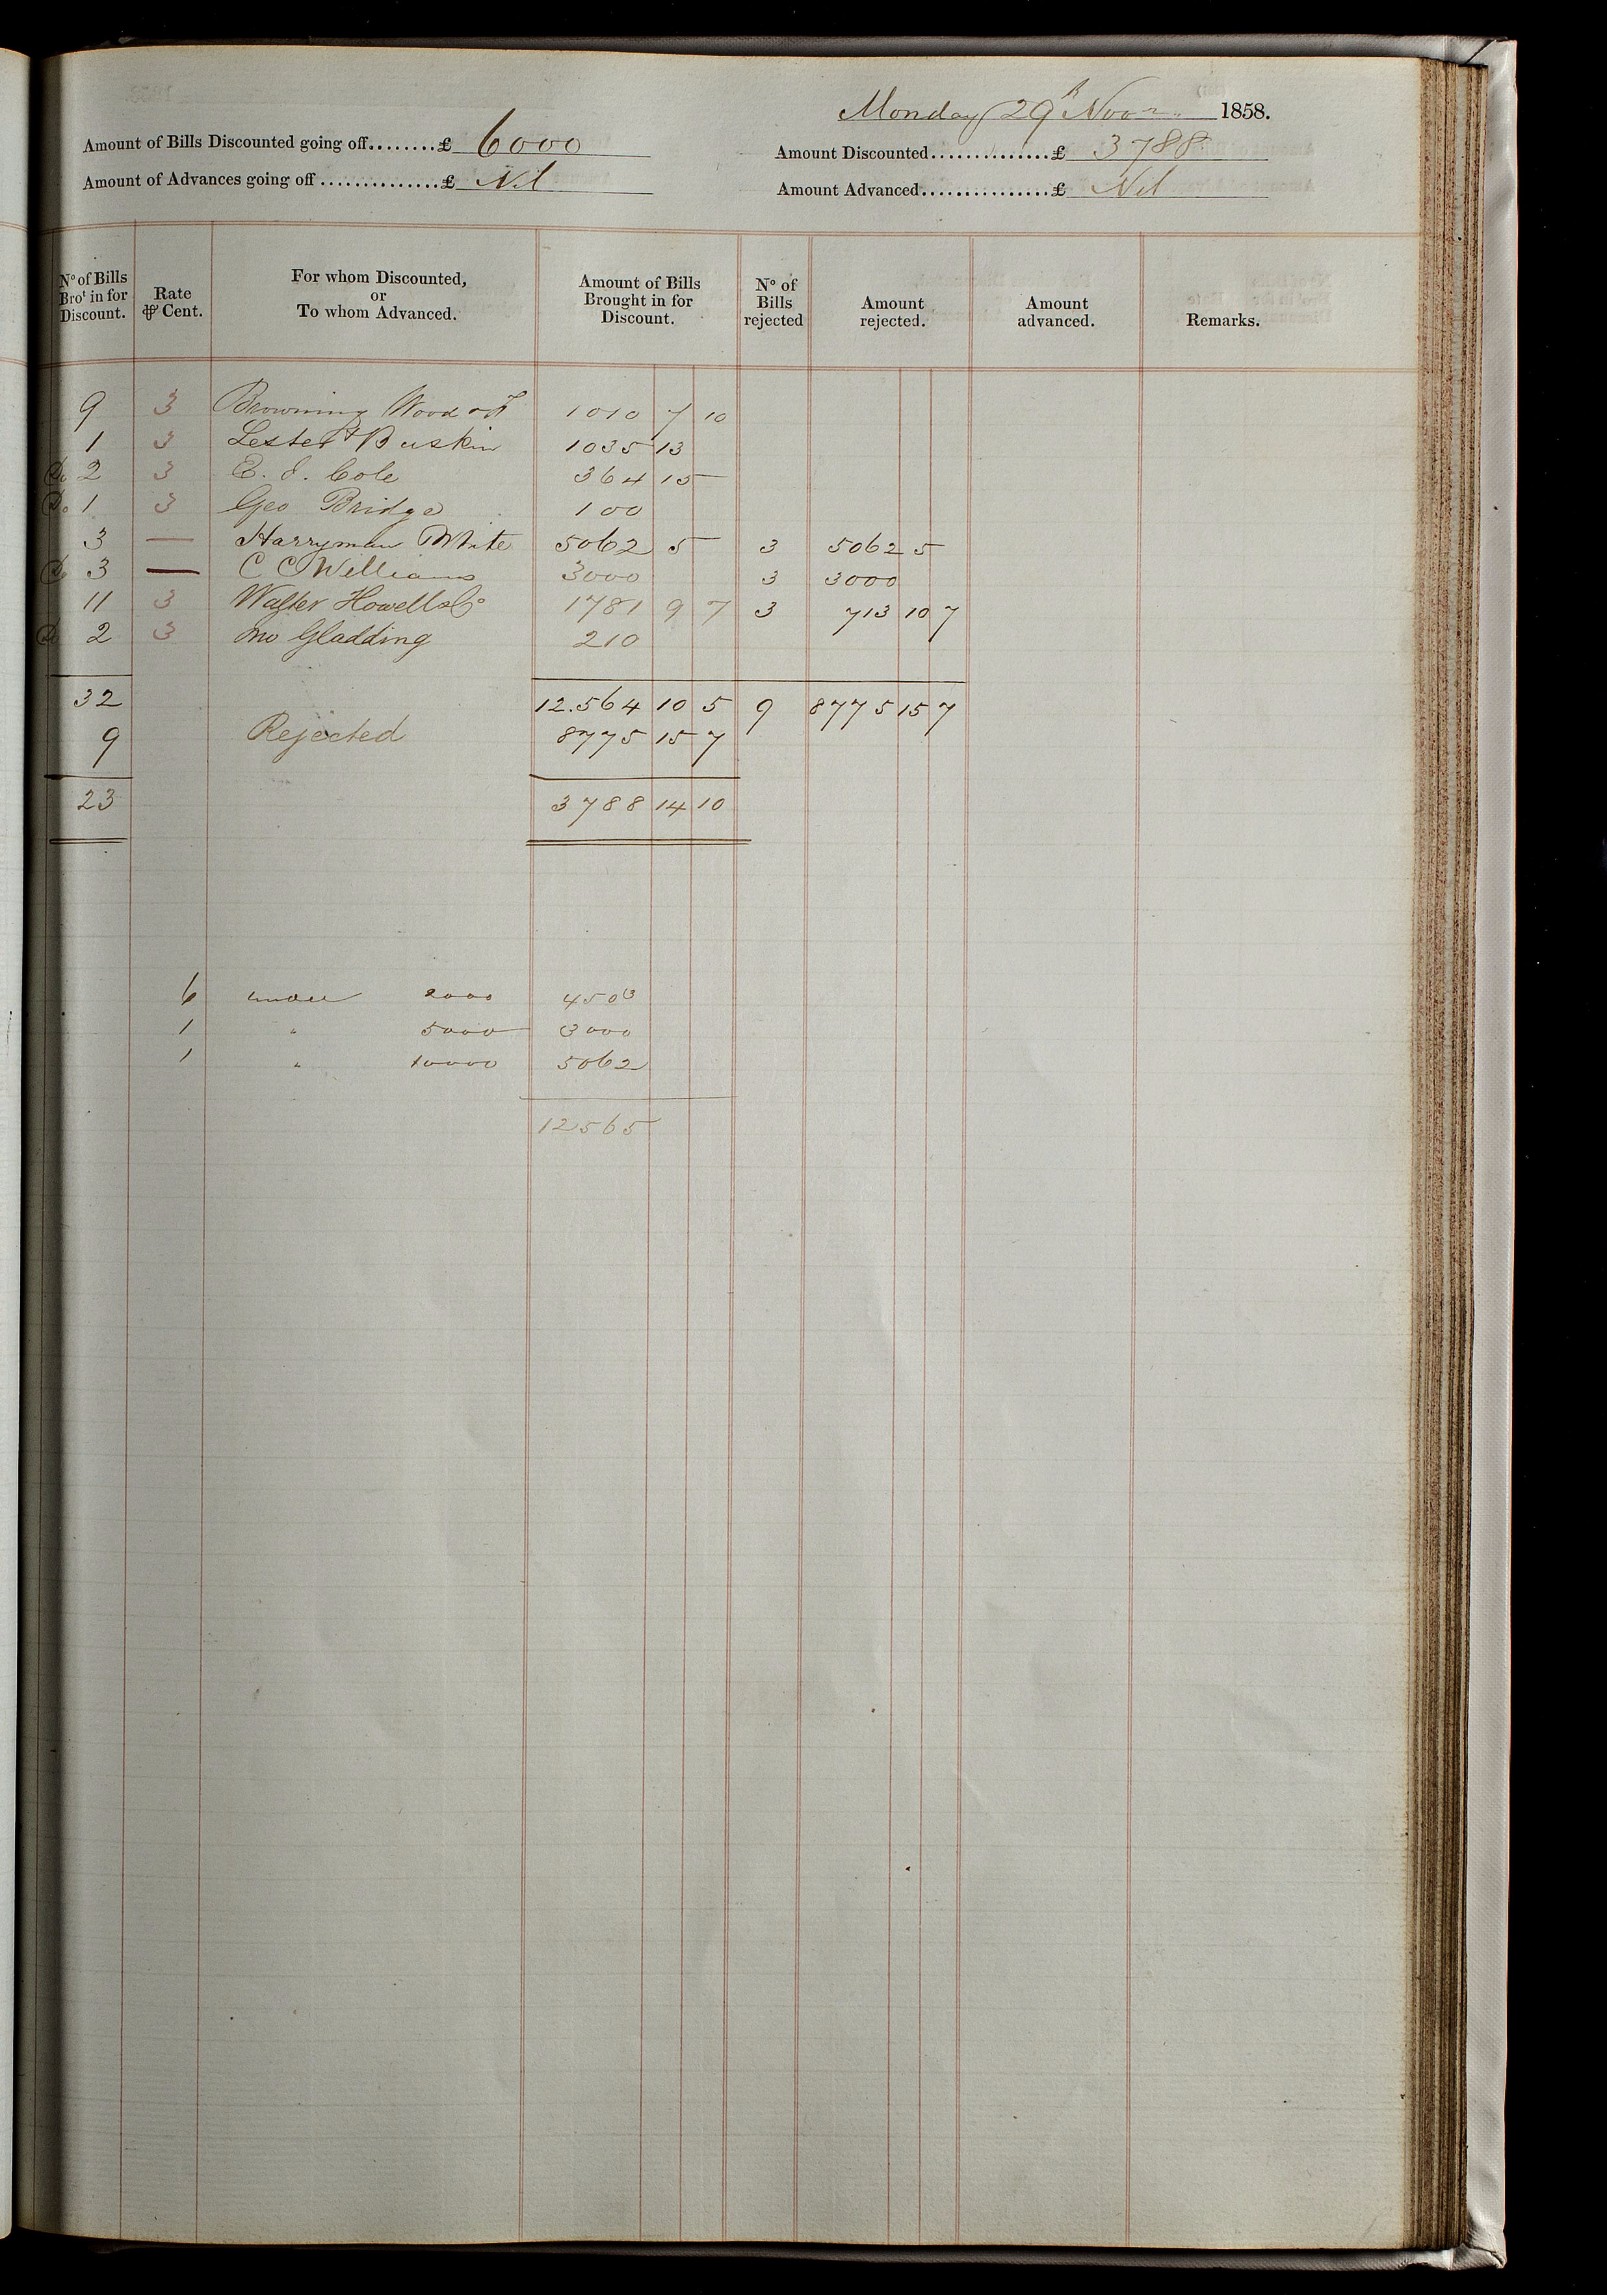 Monday 29th Novr. 1858.
Amount of Bills Discounted going off........£ 6000
Amount Discounted..............£ 3788
Amount of Advances going off..............£ Nil
Amount Advanced...............£ Nil
No of Bills Brot in for Discount.
Rate ⅌ Cent.
For whom Discounted, or To whom Advanced.
Amount of Bills Brought in for Discount.
No of Bills rejected
Amount rejected.
Amount advanced.
Remarks.
9 3 Browning Wood & 1010 7 10
1 3 Lester & Buskin 1035 13
Do 2 3 E. J. Cole 364 15
Do 1 3 Geo Bridge 100
3 — Harryman White 5062 5 3 5062 5
Do 3 — C C Williams 3000 3 3000
11 3 Walter Howell & Co 1781 9 7 3 713 10 7
Do 2 3 Jno Gladding 210
32 12.564 10 5 9 8775 15 7
9 Rejected 8775 15 7
23 3788 14 10
6 under 2000 4503
1 " 5000 3000
1 " 10000 5062
12565